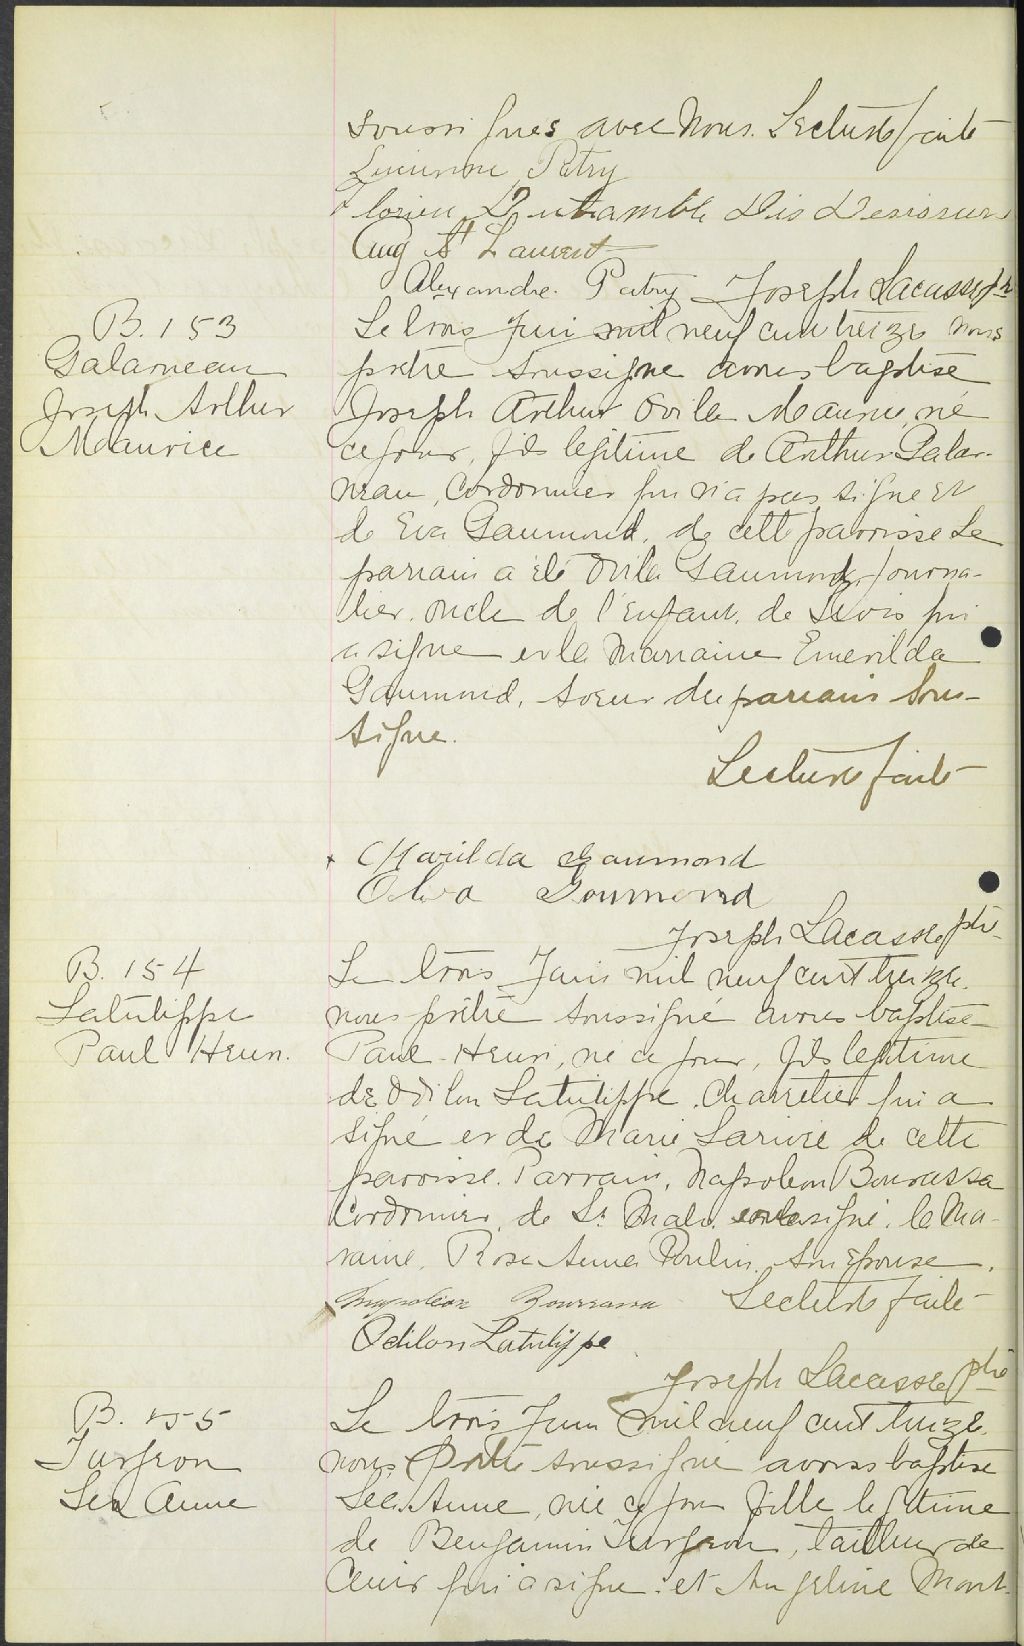 soussignés avec Nous. Lecture faite
Lucienne Patry
Aug St Laurent
Alexandre Patry Joseph Lacasse ptre
B. 153
Galarneau
Joseph Arthur
Maurice
Le trois Juin mil neuf cent treize nous
prêtre soussigné avons baptisé
Joseph Arthur Ovila Maurice, né
ce jour, fils légitime de Arthur Galar-
neau, Cordonnier qui n'a pas signé et
de Eva Gaumond, de cette paroisse Le
parrain a été Ovila Gaumond, Journa-
lier, oncle de l'Enfant, de Lévis qui
a signé et la Marraine Emerilda
Gaumond, soeur du parrain Sous-
signé.
Lecture faite
Marilda Gaumond
Gaumond
Joseph Lacasse ptre
B. 154
Latulippe
Paul Henri.
Le trois Juin mil neuf cent treize.
nous prêtre soussigné avons baptisé
Paul-Henri, né ce jour, fils légitime
de Odilon Latulippe, Charretier qui a
signé et de Marie Larivie de cette
paroisse. Parrain, Napoléon Bourassa
Cordonnier, de St Malo, signé, la Ma-
raine, Rose Anna Poulin, son épouse.
Napoléon Bourrassa Lecture faite
Odilon Latulippe
Joseph Lacasse ptre
B. 155
Turgeon
Lea Anne
Le trois Juin mil neuf cent treize.
nous Prêtre soussigné avons baptisé
Lea Anne, née ce jour fille légitime
de Benjamin Turgeon, tailleur de
Cuir qui a signé et Angeline Mont-